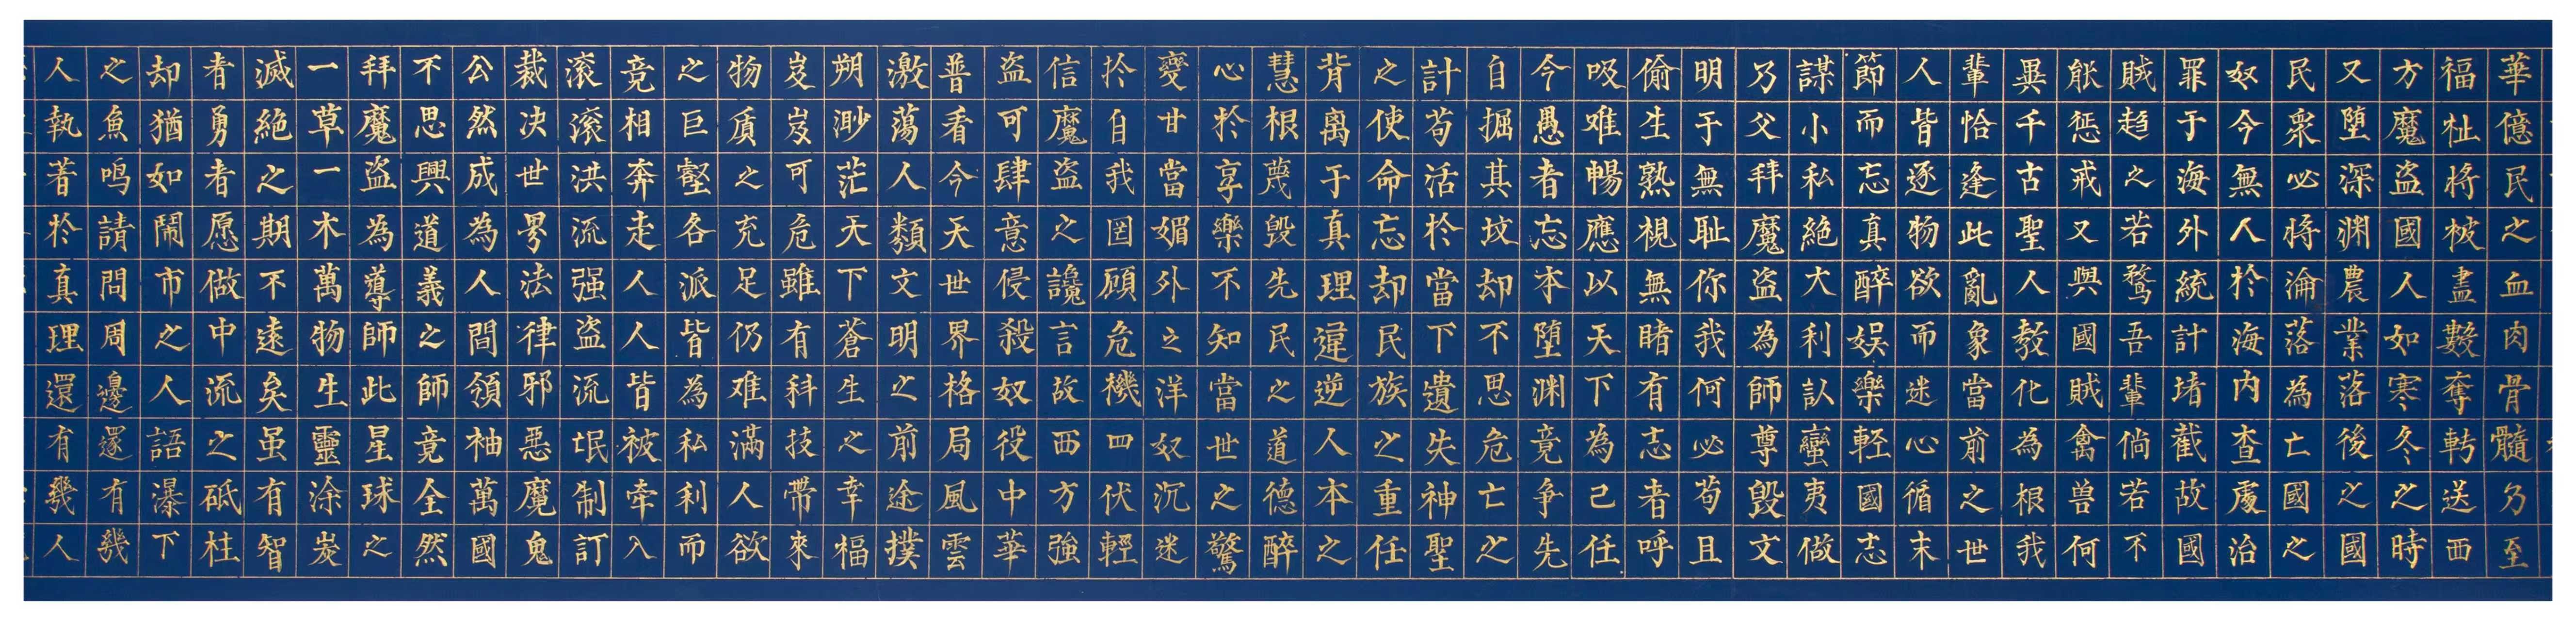 華億民之血肉骨髓乃至
福祉將被盡數奪轉送西
方魔盗國人如寒冬之時
又堕深渊農業落後之國
民衆必將淪落為亡國之
奴今無人於海内查處治
罪于海外統計堵截故國
賊趋之若鹜吾輩倘若不
能惩戒又與國賊禽兽何
異千古聖人教化為根我
輩恰逢此亂象當前之世
人皆逐物欲而迷心循末
節而忘真醉娱樂軽國志
謀小私絶大利訟蠻夷做
乃父拜魔盗為師尊毁文
明于無耻你我何必苟且
偷生熟視無睹有志者呼
吸难暢應以天下為己任
今愚者忘本堕渊竟争先
自掘其坟却不思危亡之
計苟活於當下遺失神聖
之使命忘却民族之重任
背离于真理違逆人本之
慧根蔑毁先民之道德醉
心於享樂不知當世之驚
變甘當媚外之洋奴沉迷
扵自我罔顾危機四伏輕
信魔盗之讒言故西方強
盗可肆意侵殺奴役中華
普看今天世界格局風雲
激蕩人類文明之前途撲
朔渺茫天下蒼生之幸福
岌岌可危雖有科技帶來
物质之充足仍难滿人欲
之巨壑各派皆為私利而
竞相奔走人人皆被牵入
滚滚洪流强盗流氓制訂
裁决世界法律邪恶魔鬼
公然成為人間領袖萬國
不思興道義之師竟全然
拜魔盗為導師此星球之
一草一木萬物生靈涂炭
滅絶之期不遠矣虽有智
者勇者愿做中流之砥柱
却猶如鬧市之人語瀑下
之魚鸣請問周邊還有幾
人執著於真理還有幾人